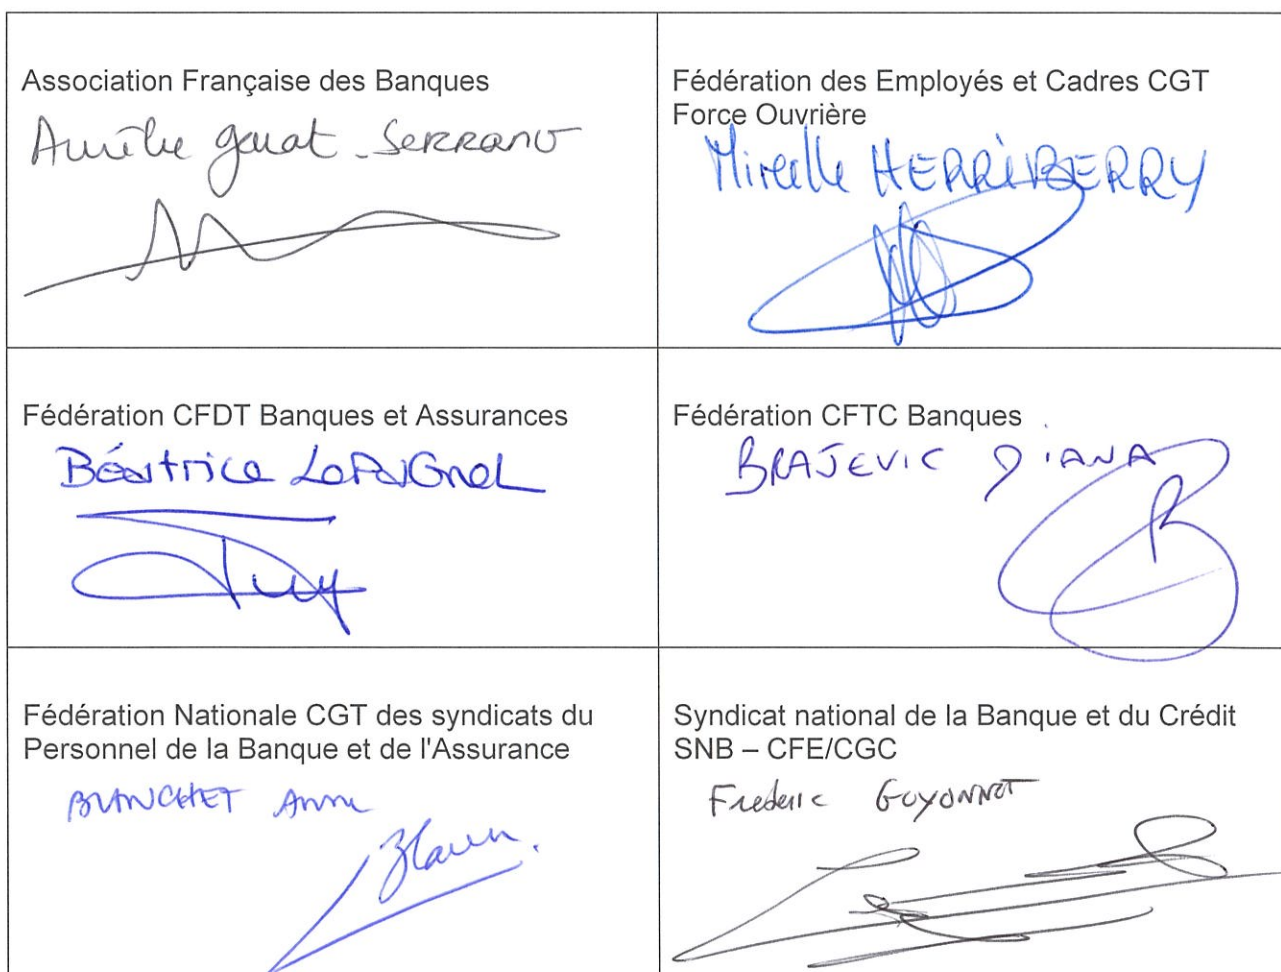 Association Française des Banques
Aurélie Gauat-Serrano
Fédération des Employés et Cadres CGT
Force Ouvrière
Mireille HERRIBERRY
Fédération CFDT Banques et Assurances
Béatrice LEPAGNOL
Fédération CFTC Banques
BRAJEVIC DIANA
Fédération Nationale CGT des syndicats du
Personnel de la Banque et de l'Assurance
BLANCHET Anne
Syndicat national de la Banque et du Crédit
SNB – CFE/CGC
Frederic GUYONNET